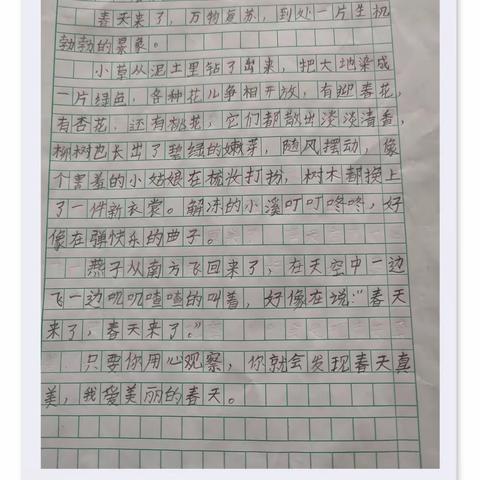 春天来了，万物复苏，到处一片生机
勃勃的景象。
小草从泥土里钻了出来，把大地染成
一片绿色，各种花儿争相开放，有迎春花，
有杏花，还有桃花，它们都散出淡淡清香，
柳树也长出了碧绿的嫩芽，随风摆动，像
个害羞的小姑娘在梳妆打扮，树木都换上
了一件新衣裳。解冻的小溪叮叮咚咚，好
像在弹快乐的曲子。
燕子从南方飞回来了，在天空中一边
飞一边叽叽喳喳的叫着，好像在说：“春天
来了，春天来了。”
只要你用心观察，你就会发现春天真
美，我爱美丽的春天。